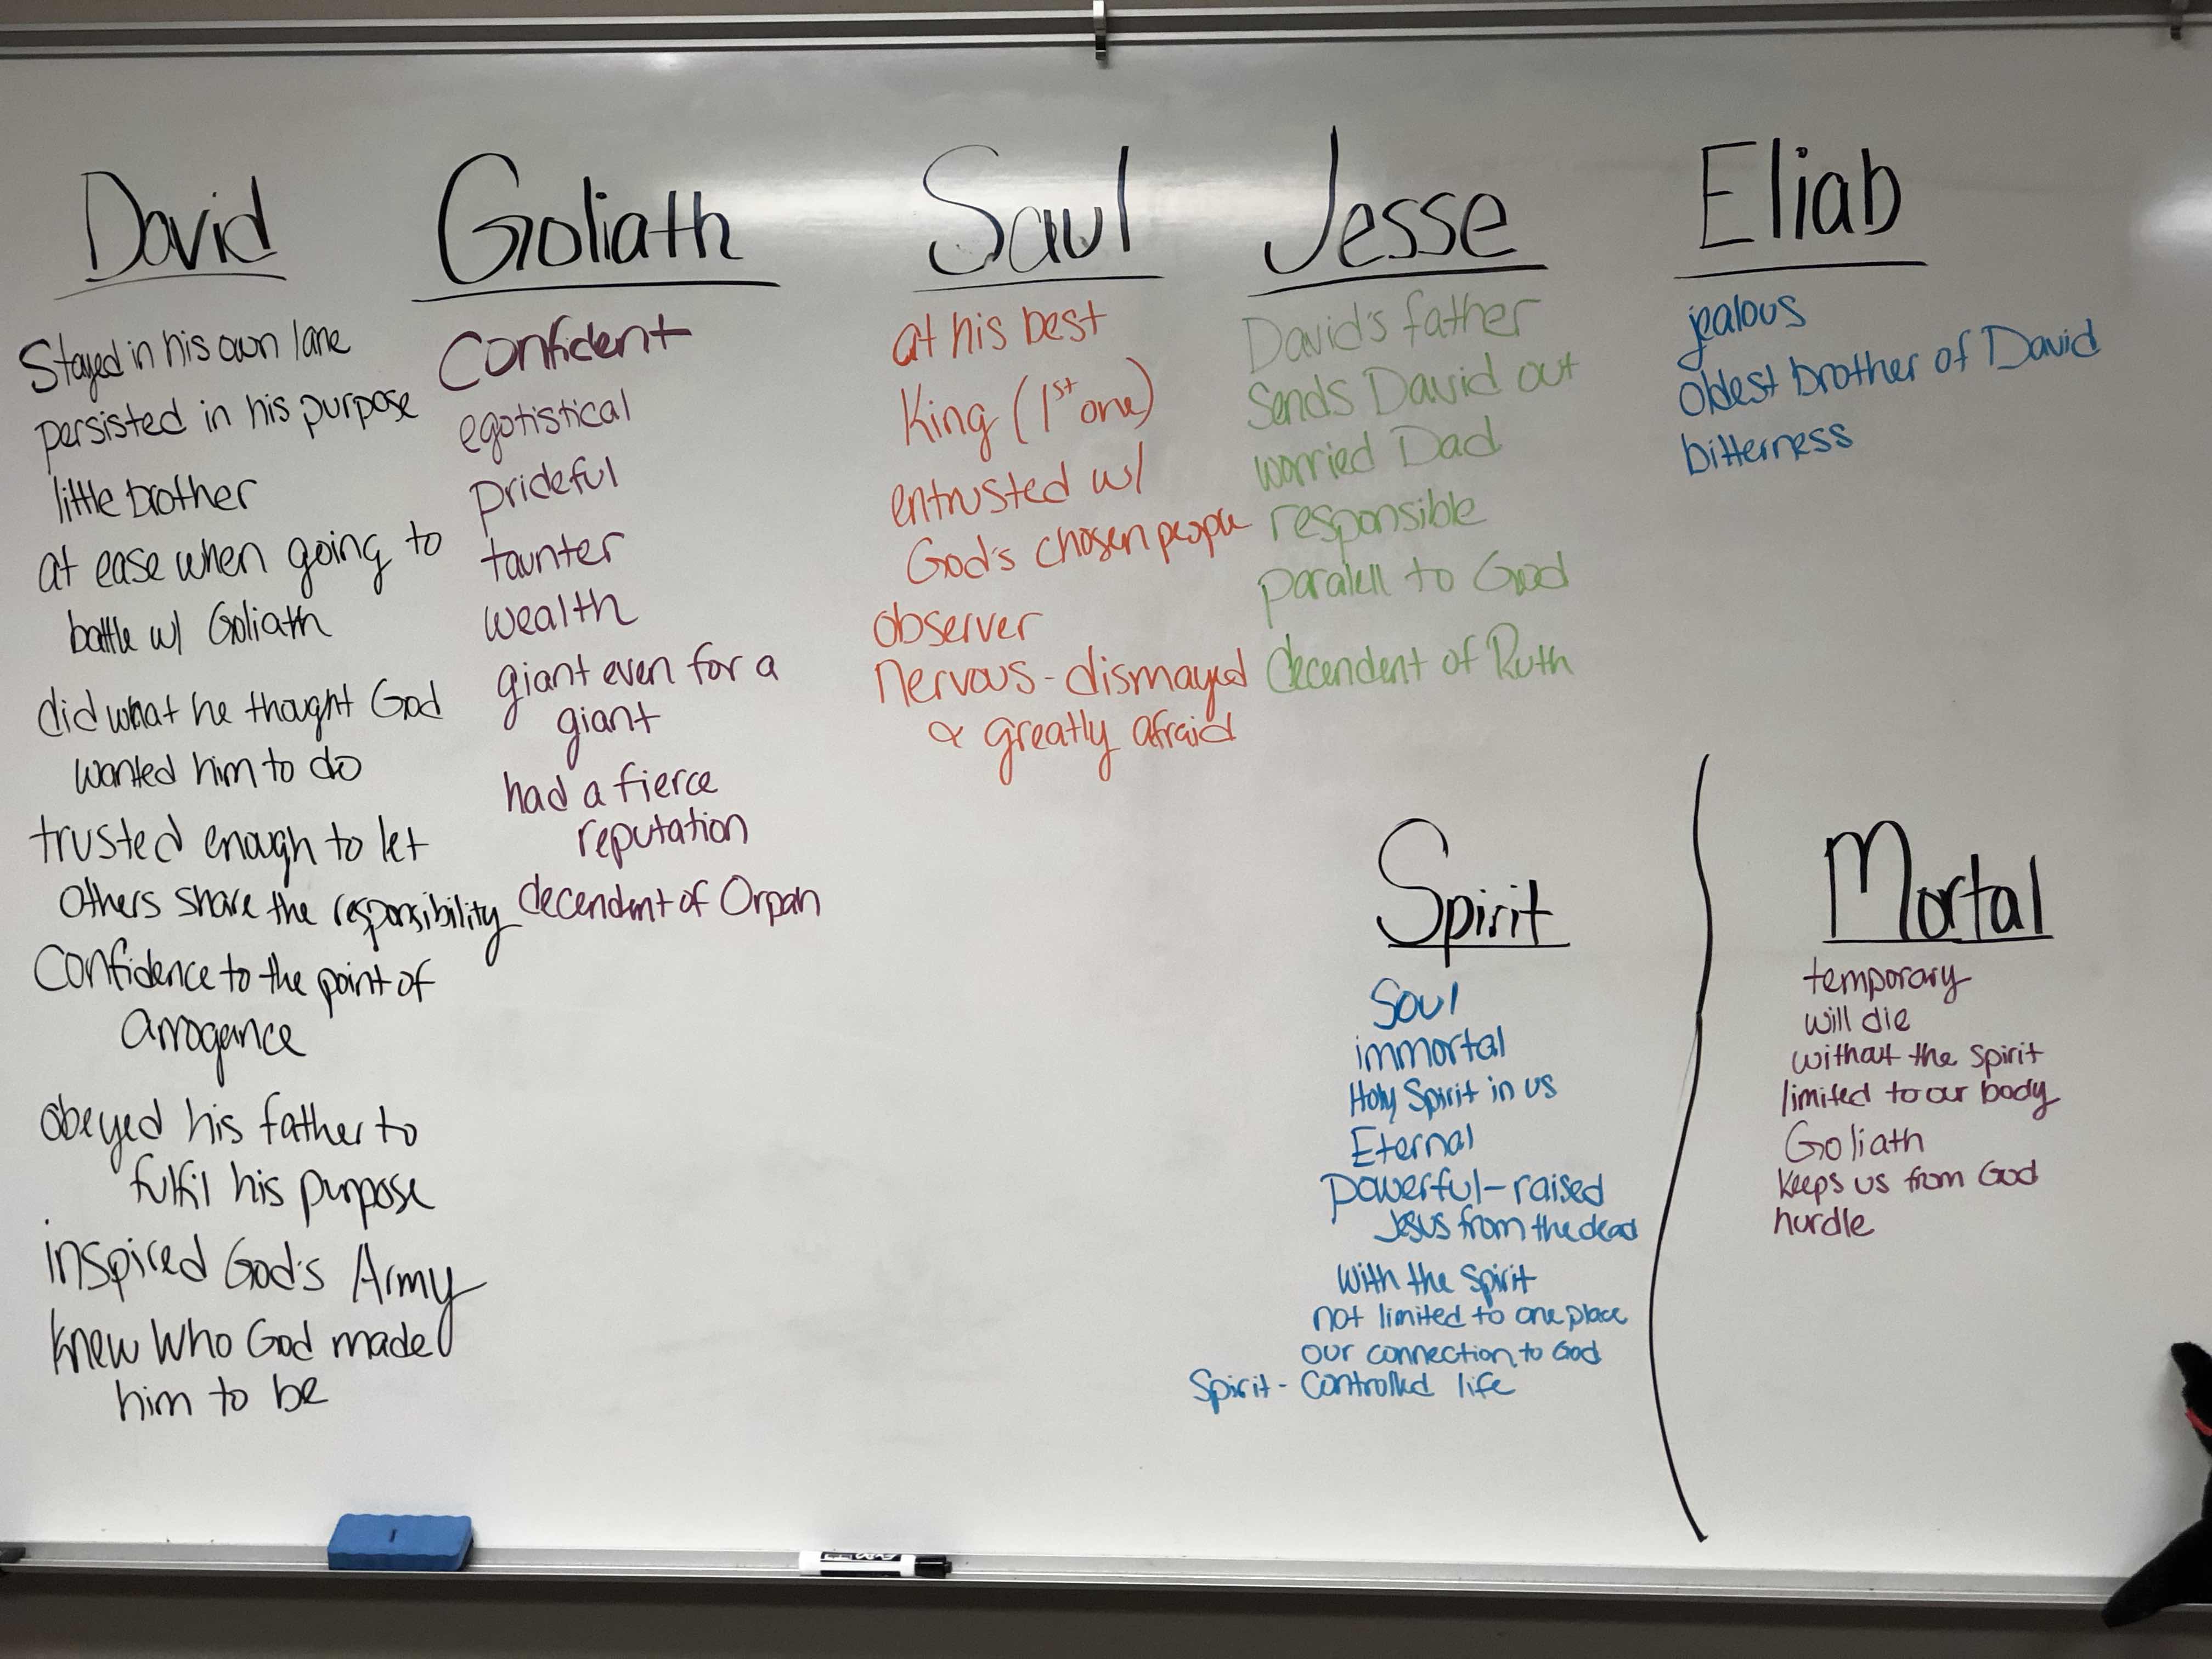 David
Stayed in his own lane
persisted in his purpose
little brother
at ease when going to
battle w/ Goliath
did what he thought God
wanted him to do
trusted enough to let
others share the responsibility
Confidence to the point of
arrogance
obeyed his father to
fulfil his purpose
inspired God's Army
knew who God made
him to be
Goliath
Confident
egotistical
prideful
taunter
wealth
giant even for a
giant
had a fierce
reputation
decendent of Orpah
Saul
at his best
King (1st one)
entrusted w/
God's chosen people
observer
nervous - dismayed
& greatly afraid
Jesse
David's father
Sends David out
worried Dad
responsible
paralell to God
decendent of Ruth
Eliab
jealous
oldest brother of David
bitterness
Spirit
Soul
immortal
Holy Spirit in us
Eternal
powerful - raised
Jesus from the dead
with the spirit
not limited to one place
our connection to God
Spirit - Controlled life
Mortal
temporary
will die
without the spirit
limited to our body
Goliath
keeps us from God
hurdle